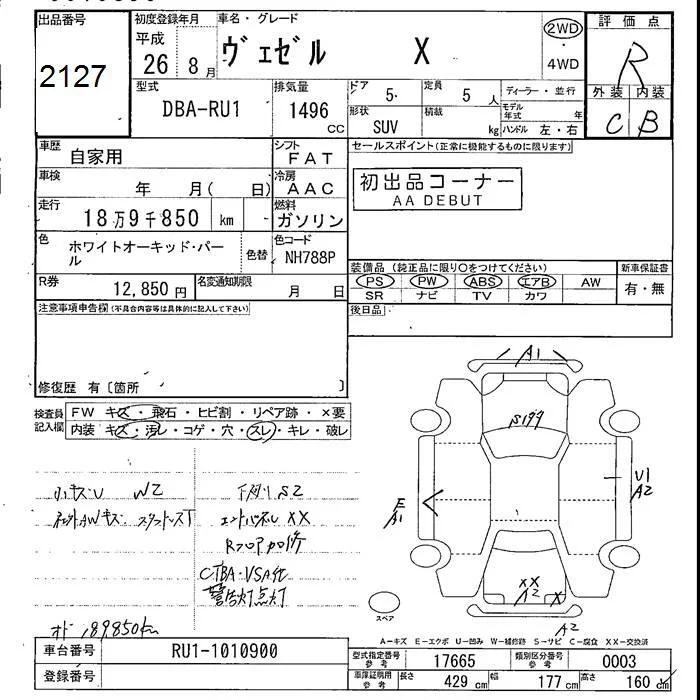 出品番号
2127
初度登録年月
平成
26年8月
車名・グレード
ヴェゼル X
2WD
・
4WD
評価点
R
外装 内装
C B
型式
DBA-RU1
排気量
1496
CC
ドア
5
定員
5
人
形状
SUV
積載
kg
ディーラー・並行
モデル
年式 年
ハンドル 左・右
車歴
自家用
シフト
FAT
車検
年 月( 日)
冷房
AAC
走行
18万9千850 km
燃料
ガソリン
色
ホワイトオーキッド・パー
ル
色替
色コード
NH788P
R券
12,850円
名変通知期限
月 日
セールスポイント(正常に機能するものに限ります)
初出品コーナー
AA DEBUT
装備品 (純正品に限り○をつけてください)
PS PW ABS エアB AW
SR ナビ TV カワ
新車保証書
有・無
後日品
注意事項申告欄(不具合内容等は具体的に記入して下さい)
修復歴 有〔箇所 〕
検査員
記入欄
FW キズ・飛石・ヒビ割・リペア跡・×要
内装 キズ・汚レ・コゲ・穴・スレ・キレ・破レ
小キズU W2
下廻りS2
エンドパネルXX
Rフロア加修
警告灯点灯
オド 189850km
A1
S199
U1
A2
E
A1
XX
A2
X
A2
スペア
A-キズ E-エクボ U-凹み W-補修跡 S-サビ C-腐食 XX-交換済
車台番号
RU1-1010900
登録番号
型式指定番号
参考
17665
類別区分番号
参考
0003
車庫証明用
参考
長さ
429 cm
幅
177 cm
高さ
160 cm